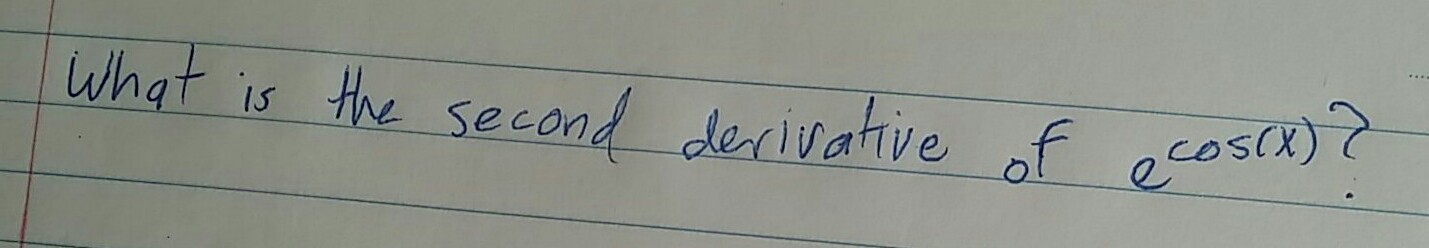 What is the second derivative of e^cos(x)?